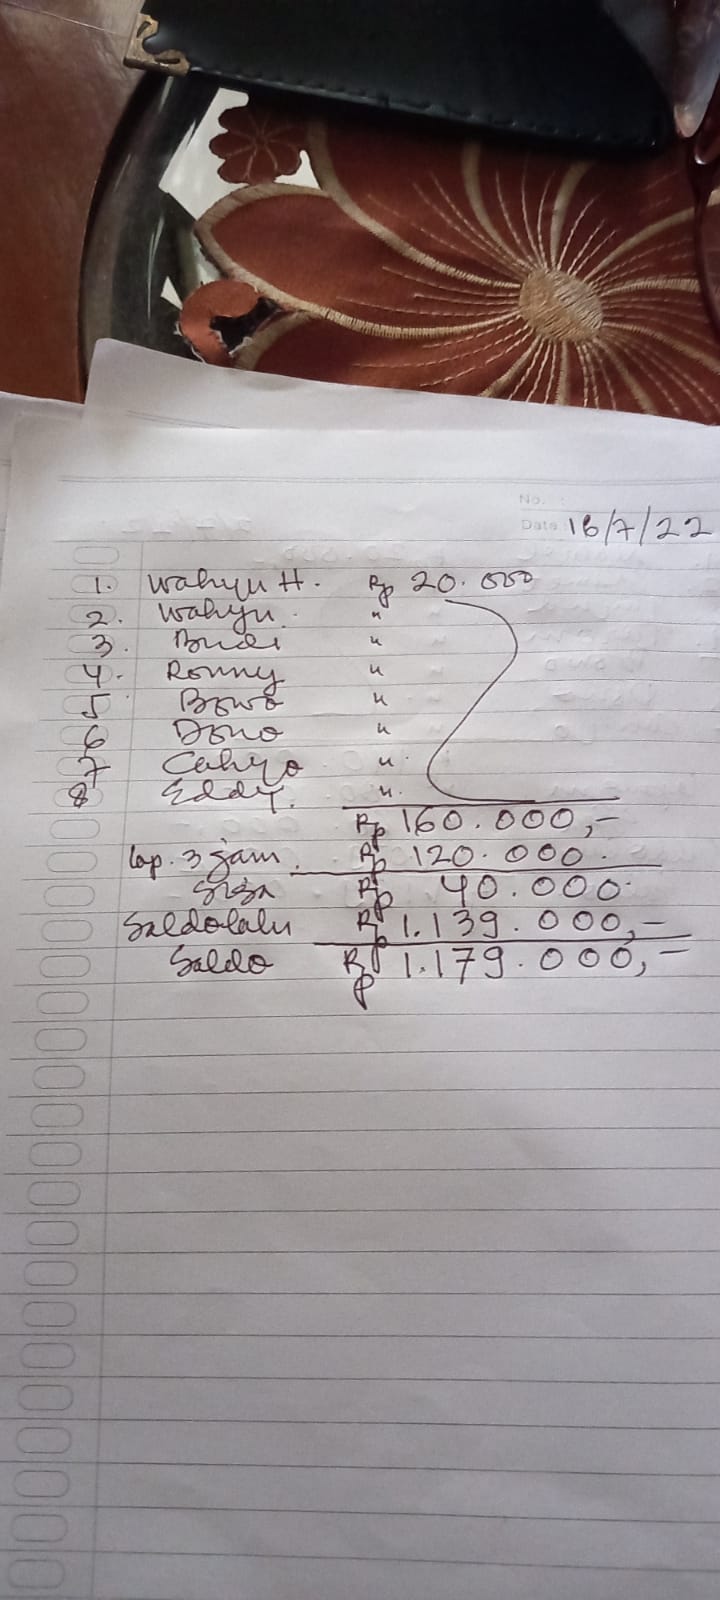 No. :
Date : 16/7/22
1. Wahyu H. Rp 20.000
2. Wahyu. "
3. Budi "
4. Ronny "
5 Bowo "
6 Dono "
7 Cahyo "
8 Eddy. "
Rp 160.000,-
lap. 3 jam. Rp 120.000.
Sisa Rp 40.000
Saldo lalu Rp 1.139.000,-
Saldo Rp 1.179.000,-